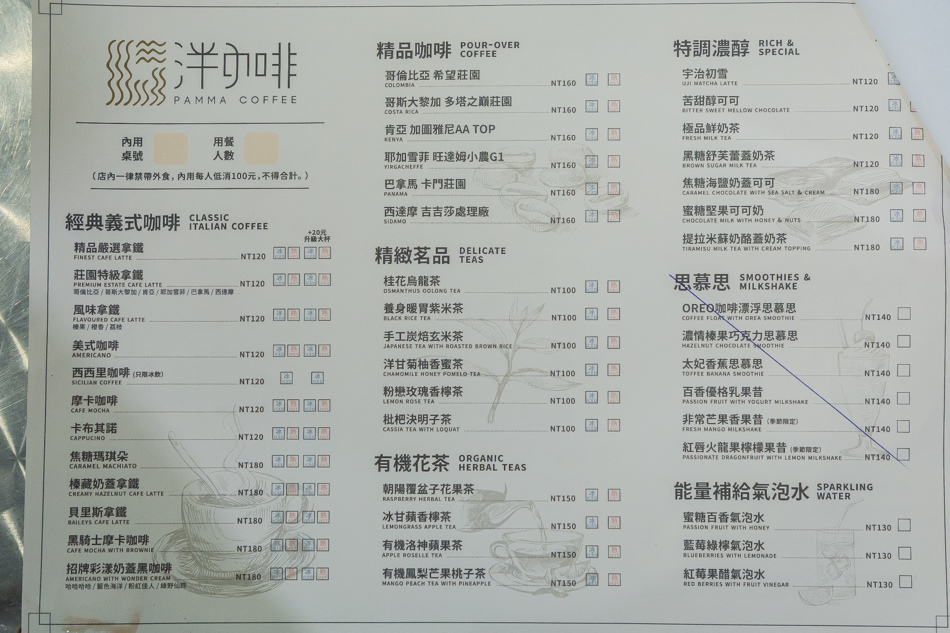 洋咖啡
PAMMA COFFEE
內用桌號 用餐人數
（店內一律禁帶外食，內用每人低消100元，不得合計。）
經典義式咖啡 CLASSIC ITALIAN COFFEE
+20元 升級大杯
精品嚴選拿鐵
FINEST CAFE LATTE NT120 冰 熱 冰 熱
莊園特級拿鐵
PREMIUM ESTATE CAFE LATTE NT120 冰 熱 冰 熱
哥倫比亞 / 哥斯大黎加 / 肯亞 / 耶加雪菲 / 巴拿馬 / 西達摩
風味拿鐵
FLAVOURED CAFE LATTE NT120 冰 熱 冰 熱
榛果 / 橙香 / 荔枝
美式咖啡
AMERICANO NT120 冰 熱 冰 熱
西西里咖啡 (只限冰飲)
SICILIAN COFFEE NT120 冰 冰
摩卡咖啡
CAFE MOCHA NT120 冰 熱 冰 熱
卡布其諾
CAPPUCINO NT120 冰 熱 冰 熱
焦糖瑪琪朵
CARAMEL MACHIATO NT180 冰 熱 冰 熱
榛藏奶蓋拿鐵
CREAMY HAZELNUT CAFE LATTE NT180 冰 熱 冰 熱
貝里斯拿鐵
BAILEYS CAFE LATTE NT180 冰 熱 冰 熱
黑騎士摩卡咖啡
CAFE MOCHA WITH BROWNIE NT180 冰 熱 冰 熱
招牌彩漾奶蓋黑咖啡
AMERICANO WITH WONDER CREAM NT180 冰 熱 冰 熱
哈哈哈哈 / 藍色海洋 / 粉紅佳人 / 綠野仙蹤
精品咖啡 POUR-OVER COFFEE
哥倫比亞 希望莊園
COLOMBIA NT160 冰 熱
哥斯大黎加 多塔之巔莊園
COSTA RICA NT160 冰 熱
肯亞 加圖雅尼AA TOP
KENYA NT160 冰 熱
耶加雪菲 旺達姆小農G1
YIRGACHEFFE NT160 冰 熱
巴拿馬 卡門莊園
PANAMA NT160 冰 熱
西達摩 吉吉莎處理廠
SIDAMO NT160 冰 熱
精緻茗品 DELICATE TEAS
桂花烏龍茶
OSMANTHUS OOLONG TEA NT100 冰 熱
養身暖胃紫米茶
BLACK RICE TEA NT100 冰 熱
手工炭焙玄米茶
JAPANESE TEA WITH ROASTED BROWN RICE NT100 冰 熱
洋甘菊柚香蜜茶
CHAMOMILE HONEY POMELO TEA NT100 冰 熱
粉戀玫瑰香檸茶
LEMON ROSE TEA NT100 冰 熱
枇杷決明子茶
CASSIA TEA WITH LOQUAT NT100 冰 熱
有機花茶 ORGANIC HERBAL TEAS
朝陽覆盆子花果茶
RASPBERRY HERBAL TEA NT150 冰 熱
冰甘蘋香檸茶
LEMONGRASS APPLE TEA NT150 冰 熱
有機洛神蘋果茶
APPLE ROSELLE TEA NT150 冰 熱
有機鳳梨芒果桃子茶
MANGO PEACH TEA WITH PINEAPPLE NT150 冰 熱
特調濃醇 RICH & SPECIAL
宇治初雪
UJI MATCHA LATTE NT120 冰
苦甜醇可可
BITTER SWEET MELLOW CHOCOLATE NT120 冰
極品鮮奶茶
FRESH MILK TEA NT120 冰 熱
黑糖舒芙蕾蓋奶茶
BROWN SUGAR MILK TEA NT120 冰 熱
焦糖海鹽奶蓋可可
CARAMEL CHOCOLATE WITH SEA SALT & CREAM NT180 冰 熱
蜜糖堅果可可奶
CHOCOLATE MILK WITH HONEY & NUTS NT180 冰 熱
提拉米蘇奶酪蓋奶茶
TIRAMISU MILK TEA WITH CREAM TOPPING NT180 冰 熱
思慕思 SMOOTHIES & MILKSHAKE
OREO咖啡漂浮思慕思
COFFEE FLOAT WITH OREA SMOOTHIE NT140
濃情榛果巧克力思慕思
HAZELNUT CHOCOLATE SMOOTHIE NT140
太妃香蕉思慕思
TOFFEE BANANA SMOOTHIE NT140
百香優格乳果昔
PASSION FRUIT WITH YOGURT MILKSHAKE NT140
非常芒果香果昔 (季節限定)
FRESH MANGO MILKSHAKE NT140
紅唇火龍果檸檬果昔 (季節限定)
PASSIONATE DRAGONFRUIT WITH LEMON MILKSHAKE NT140
能量補給氣泡水 SPARKLING WATER
蜜糖百香氣泡水
PASSION FRUIT WITH HONEY NT130
藍莓綠檸氣泡水
BLUEBERRIES WITH LEMONADE NT130
紅莓果醋氣泡水
RED BERRIES WITH FRUIT VINEGAR NT130